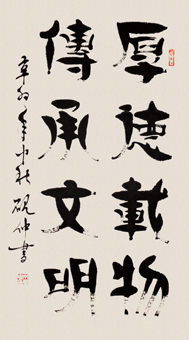 厚德載物
傳承文明
辛卯年中秋 硯仲書